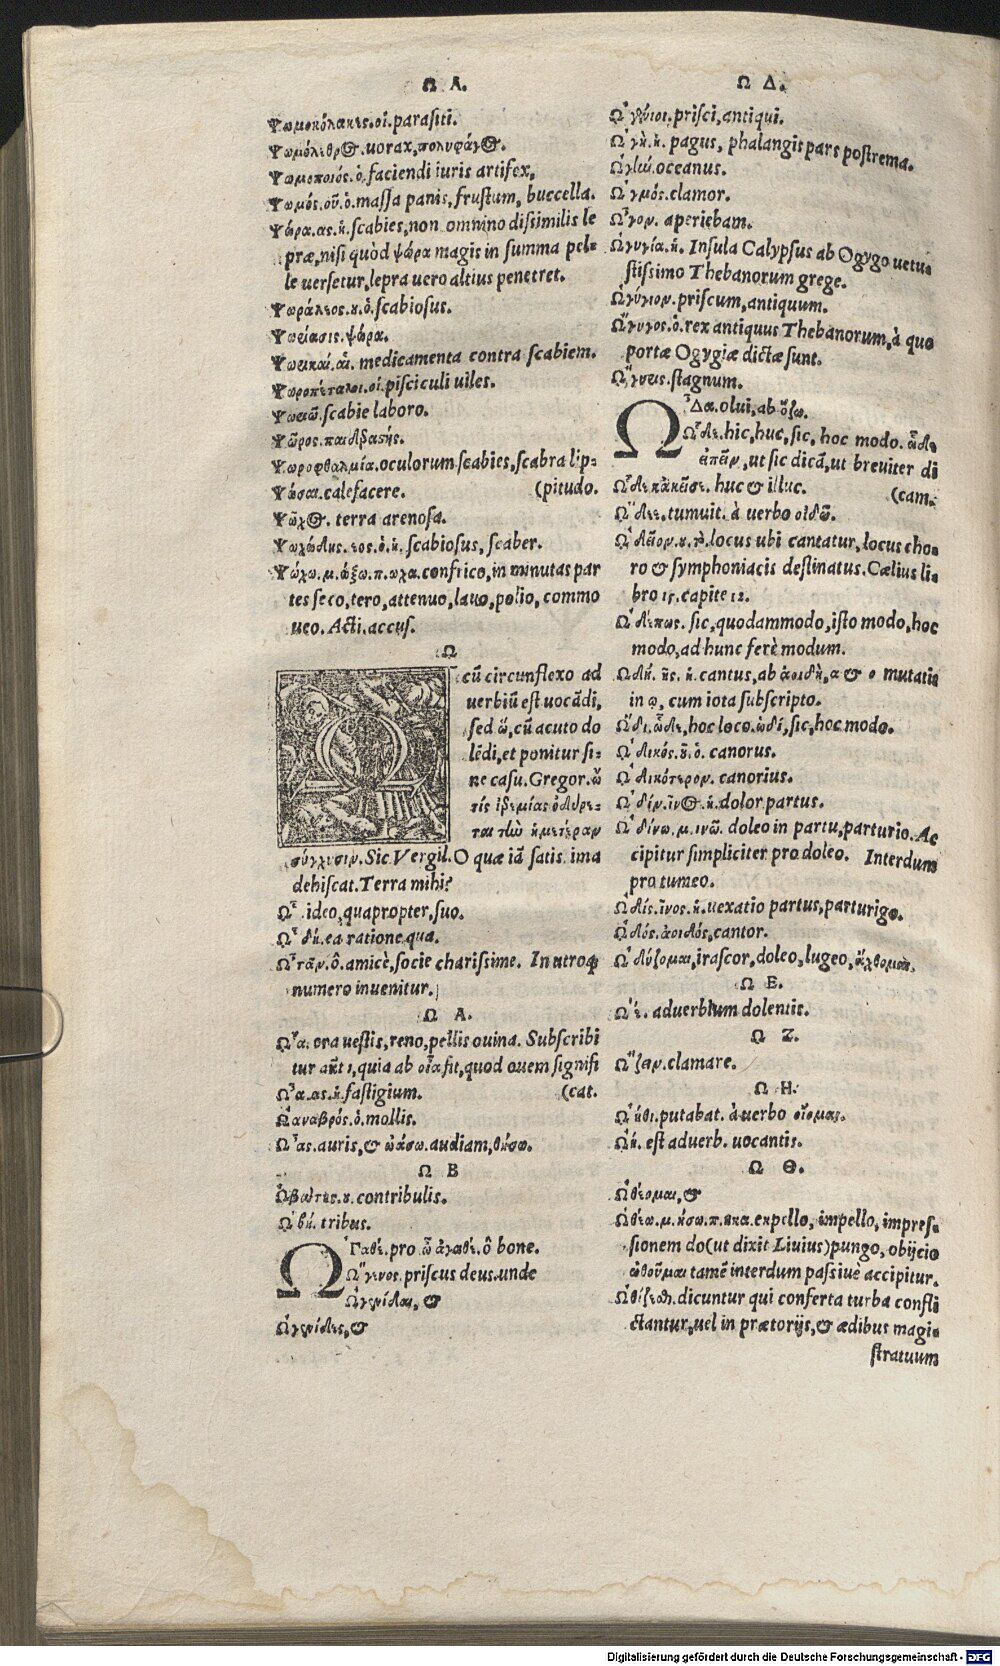 Ω Α.
Ψωμοκόλακες.οἱ.parasiti.
Ψωμόλεθρος.uorax,πολυφάγος.
Ψωμοποιός.ὁ.faciendi iuris artifex,
Ψωμός.οῦ.ὁ.massa panis,frustum, buccella.
Ψώρα.ας.ἡ.scabies,non omnino dissimilis le
præ,nisi quòd ψώρα magis in summa pel-
le uersetur,lepra uero altius penetret.
Ψωράλεος.ου.ὁ.scabiosus.
Ψωρίασις.ψώρα.
Ψωρικαί.αἱ. medicamenta contra scabiem.
Ψωροπέταλοι.οἱ.pisciculi uiles.
Ψωριῶ.scabie laboro.
Ψῶρος.παιδραστής.
Ψωροφθαλμία.oculorum scabies,scabra lip-
Ψῶσαι.calefacere. (pitudo.
Ψῶχος. terra arenosa.
Ψωχώδης.εος.ὁ.ἡ. scabiosus, scaber.
Ψώχω.μ.ώξω.π.ωχα.confrico,in minutas par
tes seco,tero,attenuo,lauo,polio, commo
ueo. Acti.accus.
Ω
cũ circunflexo ad
uerbiũ est uocãdi,
sed ὤ,cũ acuto do
lẽdi,et ponitur si-
ne casu.Gregor.ὤ
τίς ἱρεμίας ὀδυρε-
ται τὴν ἡμετέραν
σύγχυσιν.Sic Vergil.O quæ iã satis ima
dehiscat.Terra mihi?
Ὧ .ideo,quapropter,suo.
Ὧ δή.ea ratione qua.
Ὦ τᾶν.ô.amicè,socie charissime. In utroq;
numero inuenitur.
Ω Α.
Ὤα. ora uestis,reno,pellis ouina. Subscribi
tur aũt ι,quia ab οἶα fit,quod ouem signifi
Ὤα.ας.ἡ.fastigium. (cat.
Ὠαναβρός.ὁ.mollis.
Ὦας.auris,& ὠάσω.audiam,θήσω.
Ω Β
Ὠβάτης.ου.contribulis.
Ὠβή. tribus.
ΩΓαθέ.pro ὦ ἀγαθέ.ô bone.
Ὤγενος.priscus deus.unde
Ὠγενίδαι, &
Ὠγενίδες,&
Ω Δ.
Ὠγένιοι.prisci,antiqui.
Ὠγή.ἡ. pagus, phalangis pars postrema.
Ὠγήν.oceanus.
Ὠγμός.clamor.
Ὦγον. aperiebam.
Ὠγυγία.ἡ. Insula Calypsus ab Ogygo uetu-
stissimo Thebanorum grege.
Ὠγύγιον.priscum,antiquum.
Ὤγυγος.ὁ.rex antiquus Thebanorum,à quo
portæ Ogygiæ dictæ sunt.
Ὤγυρις.stagnum.
ΩΔα.olui,ab ὄζω.
Ὧδε.hic,huc,sic, hoc modo. ὧδε
εἰπεῖν,ut sic dicã,ut breuiter di
Ὧδε κἀκεῖσε. huc & illuc. (cam.
Ὤδεε.tumuit. à uerbo οἰδῶ.
Ὠδεῖον.ου.τὸ.locus ubi cantatur,locus cho-
ro & symphoniacis destinatus.Cælius li-
bro 15.capite 12.
Ὧδέπως. sic,quodammodo,isto modo,hoc
modo,ad hunc ferè modum.
Ὠδή. ῆς. ἡ.cantus,ab ἀοιδή,α & ο mutatis
in ῳ, cum iota subscripto.
Ὧδι.ὧδε,hoc loco.ὡδί,sic,hoc modo.
Ὠδικός.οῦ.ὁ. canorus.
Ὠδικότερον. canorius.
Ὠδίν.ῖνος.ἡ.dolor partus.
Ὠδίνω.μ.ινῶ. doleo in partu,parturio. Ac
cipitur simpliciter pro doleo. Interdum
pro tumeo.
Ὠδίς.ῖνος.ἡ.uexatio partus,parturigo.
Ὠδός.ἀοιδός,cantor.
Ὠδύζομαι,irascor,doleo,lugeo,ἄχθομαι.
Ω Ε.
Ὠέ. aduerbium dolentis.
Ω Ζ.
Ὤζειν.clamare.
Ω Η.
Ὠήθι.putabat. à uerbo οἴομαι.
Ὠή. est aduerb. uocantis.
Ω Θ.
Ὠθέομαι,&
Ὠθέω.μ.ήσω.π.ηκα.expello, impello, impres-
sionem do(ut dixit Liuius)pungo,obijcio
ὠθοῦμαι tamẽ interdum passiuè accipitur.
Ὠθίζεσθαι.dicuntur qui conferta turba confli
ctantur,uel in prætorijs,& ædibus magi-
stratuum
Digitalisierung gefördert durch die Deutsche Forschungsgemeinschaft - DFG